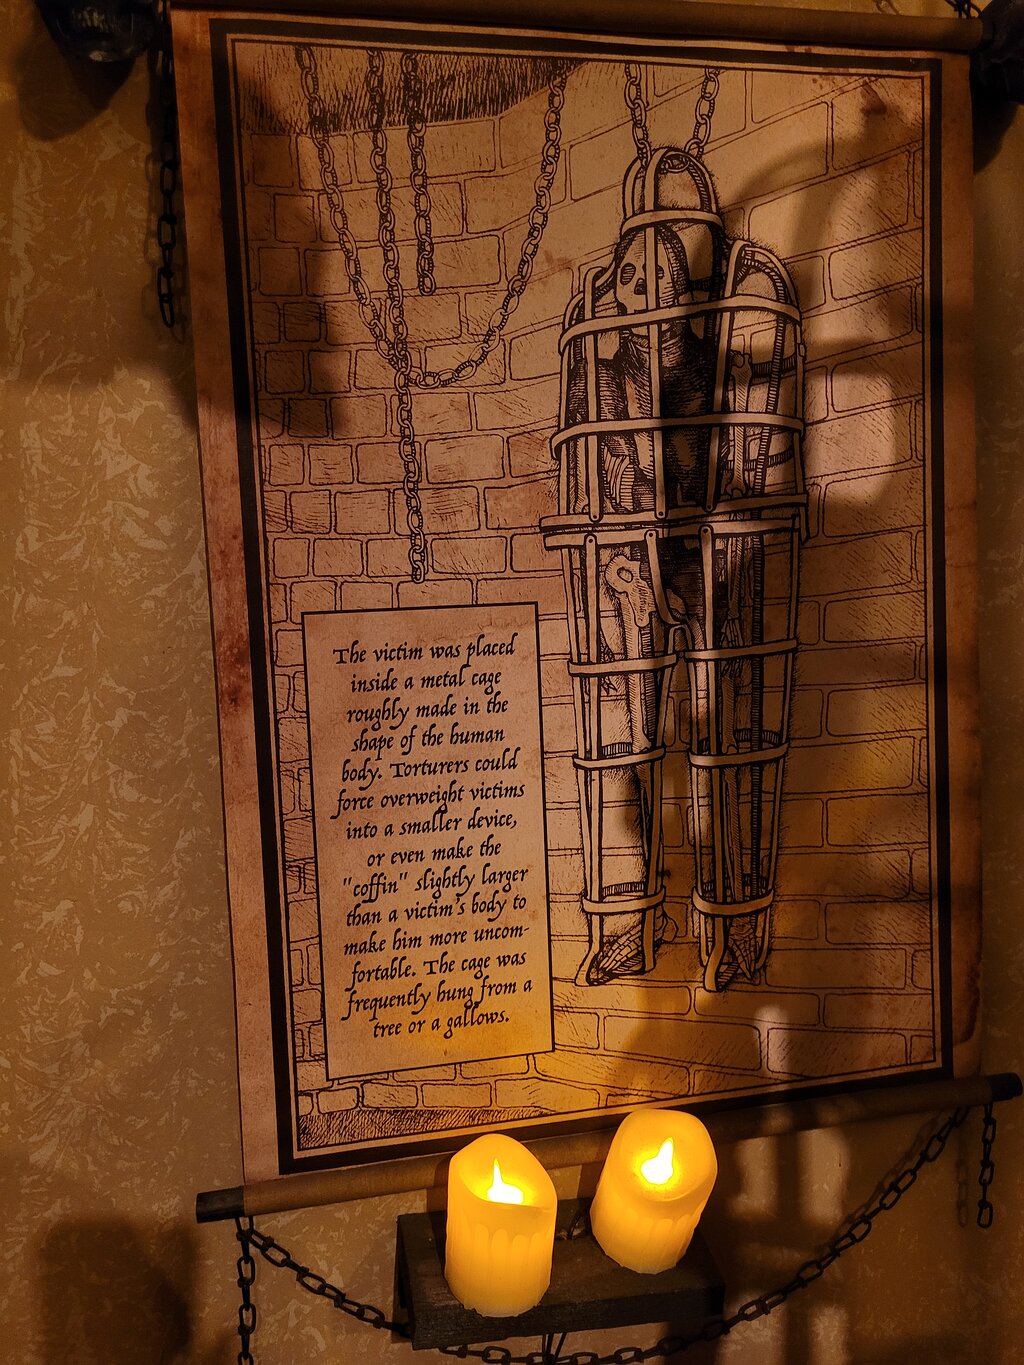 The victim was placed
inside a metal cage
roughly made in the
shape of the human
body. Torturers could
force overweight victims
into a smaller device,
or even make the
"coffin" slightly larger
than a victim's body to
make him more uncom-
fortable. The cage was
frequently hung from a
tree or a gallows.